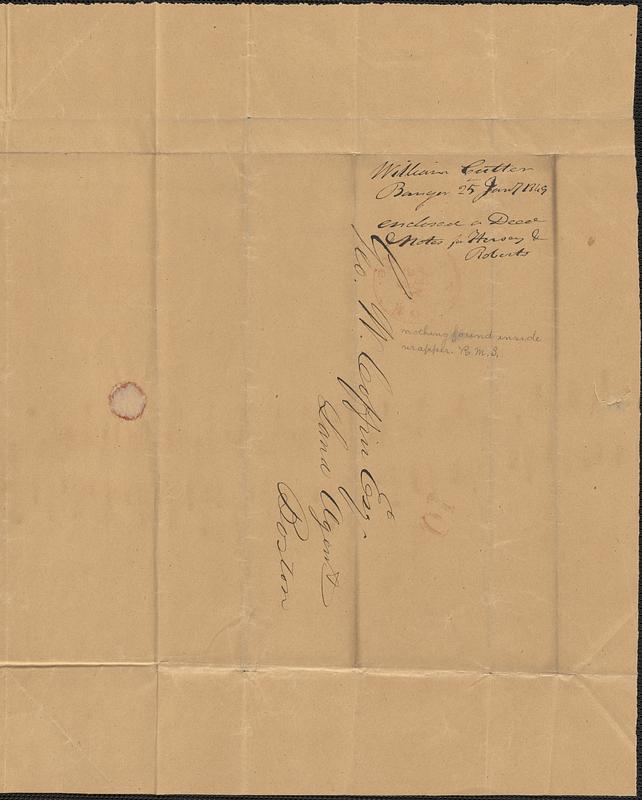 William Cutter
Bangor 25 Jany 1849
enclosed a Deed
& Notes for Hersey &
Roberts
nothing found inside
wrapper. R.M.S.
Geo. W. Coffin Esqr.
Land Agent
Boston
10